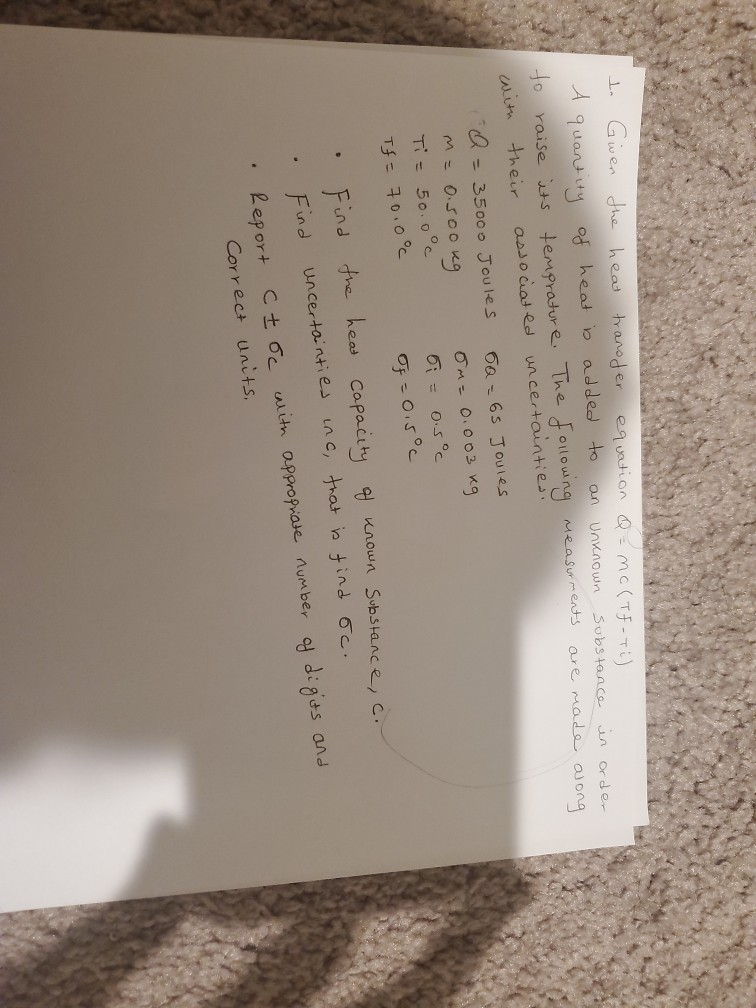 1. Given the heat transfer equation Q = mc(Tf-Ti)
A quantity of heat is added to an unknown substance in order
to raise its temprature. The following measurments are made along
with their associated uncertainties.
Q = 35000 Joules σQ = 65 Joules
m = 0.500 kg σm = 0.003 kg
Ti = 50.0°c σi = 0.5°c
Tf = 70.0°c σf = 0.5°c
• Find the heat capacity of known substance, c.
• Find uncertainties in c, that is find σc.
• Report c ± σc with appropriate number of digits and
correct units.